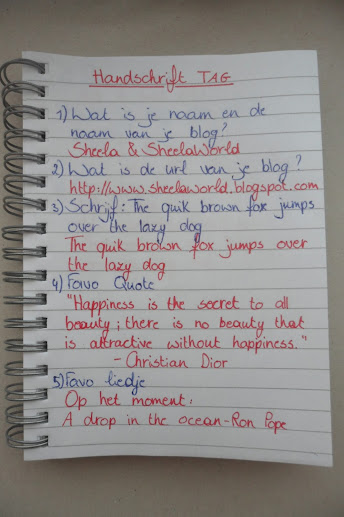 Handschrift TAG
1) Wat is je naam en de
naam van je blog?
Sheela & SheelaWorld
2) Wat is de url van je blog?
http://www.sheelaworld.blogspot.com
3) Schrijf: The quik brown fox jumps
over the lazy dog
The quik brown fox jumps over
the lazy dog
4) Favo Quote
"Happiness is the secret to all
beauty; there is no beauty that
is attractive without happiness."
- Christian Dior
5) Favo liedje
Op het moment:
A drop in the ocean - Ron Pope